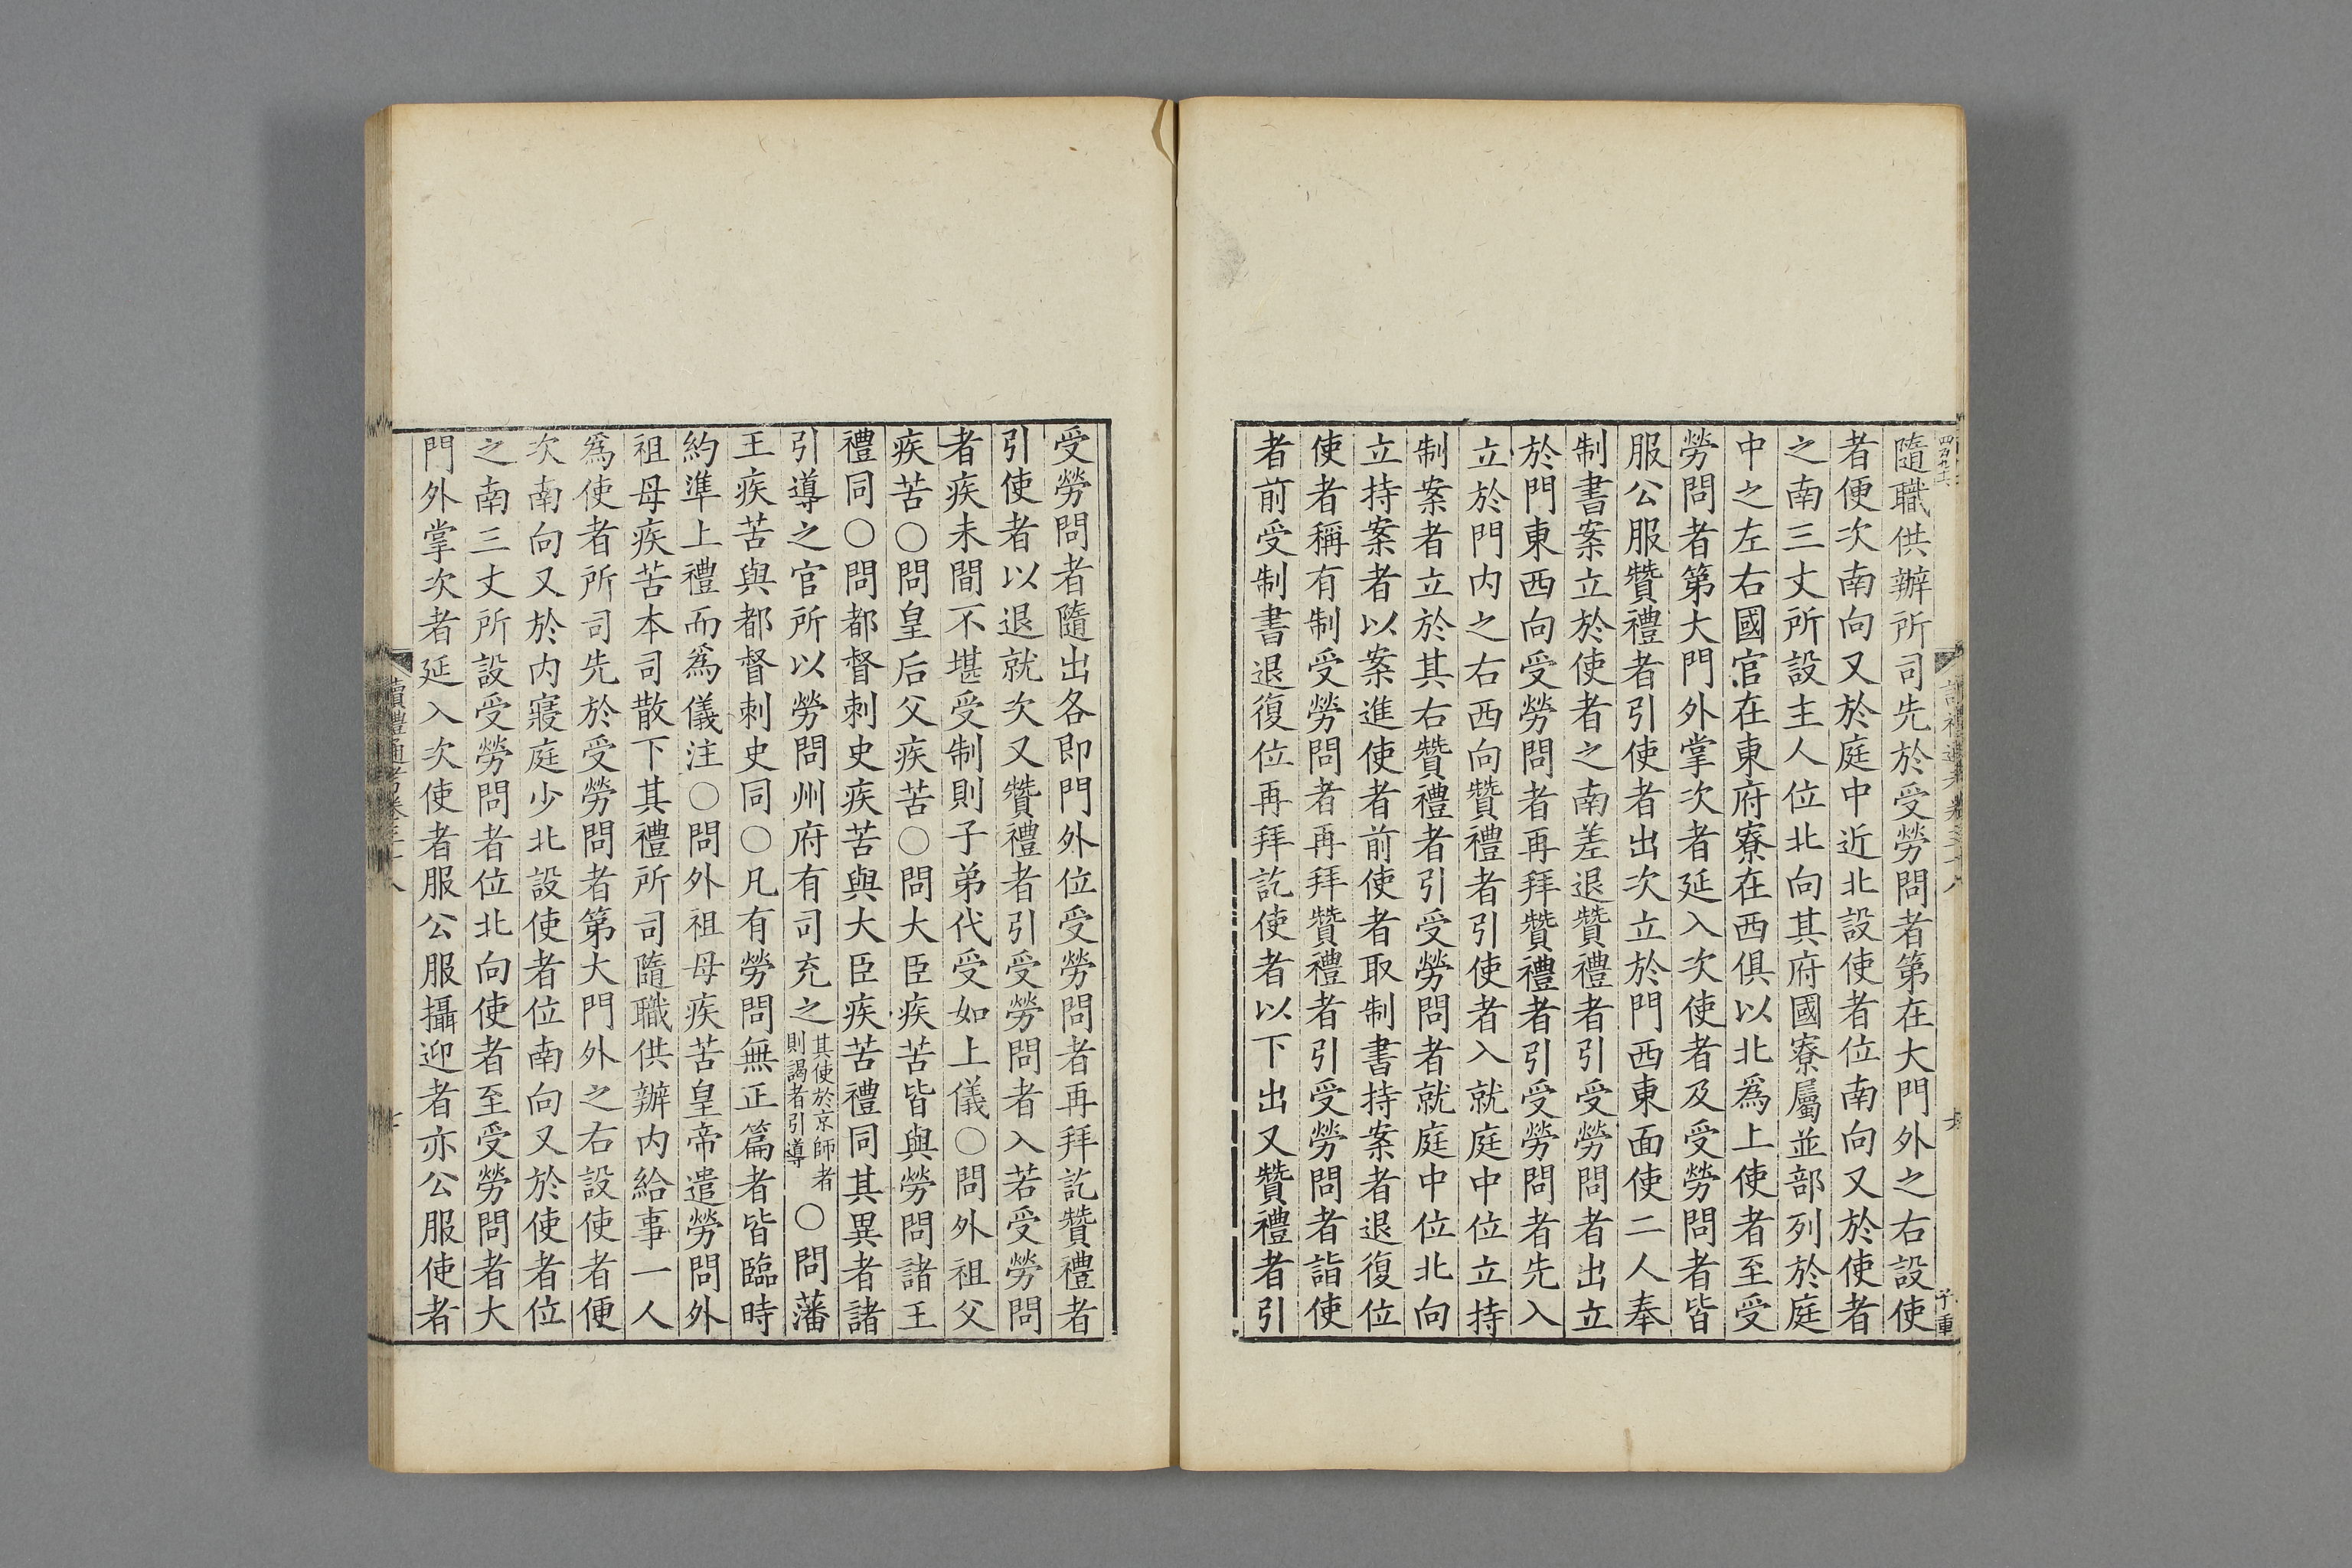 隨職供辦所司先於受勞問者第在大門外之右設使
者便次南向又於庭中近北設使者位南向又於使者
之南三丈所設主人位北向其府國寮屬並部列於庭
中之左右國官在東府寮在西俱以北爲上使者至受
勞問者第大門外掌次者延入次使者及受勞問者皆
服公服贊禮者引使者出次立於門西東面使二人奉
制書案立於使者之南差退贊禮者引受勞問者出立
於門東西向受勞問者再拜贊禮者引受勞問者先入
立於門内之右西向贊禮者引使者入就庭中位立持
制案者立於其右贊禮者引受勞問者就庭中位北向
立持案者以案進使者前使者取制書持案者退復位
使者稱有制受勞問者再拜贊禮者引受勞問者詣使
者前受制書退復位再拜訖使者以下出又贊禮者引
受勞問者隨出各即門外位受勞問者再拜訖贊禮者
引使者以退就次又贊禮者引受勞問者入若受勞問
者疾未間不堪受制則子弟代受如上儀○問外祖父
疾苦○問皇后父疾苦○問大臣疾苦皆與勞問諸王
禮同○問都督刺史疾苦與大臣疾苦禮同其異者諸
引導之官所以勞問州府有司充之其使於京師者則謁者引導○問藩
王疾苦與都督刺史同○凡有勞問無正篇者皆臨時
約準上禮而爲儀注○問外祖母疾苦皇帝遣勞問外
祖母疾苦本司散下其禮所司隨職供辦内給事一人
爲使者所司先於受勞問者第大門外之右設使者便
次南向又於内寢庭少北設使者位南向又於使者位
之南三丈所設受勞問者位北向使者至受勞問者大
門外掌次者延入次使者服公服攝迎者亦公服使者
讀禮通考卷三十八